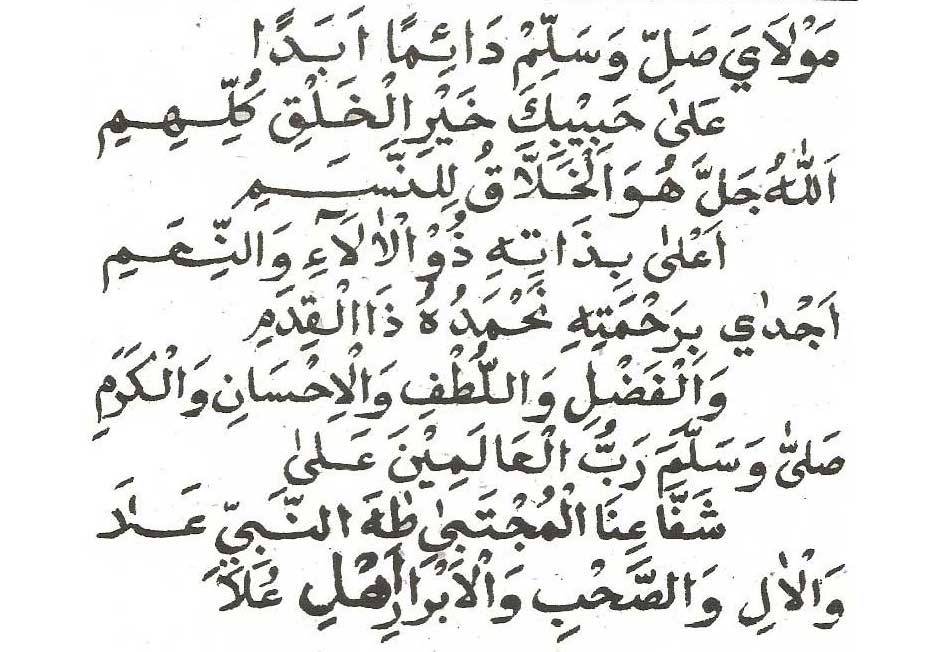 مَوْلَايَ صَلِّ وَسَلِّمْ دَائِمًا اَبَدًا
عَلىٰ حَبِيْبِكَ خَيْرِ الْخَلْقِ كُلِّهِمِ
اَللّٰهُ جَلَّ هُوَ الْخَلَّاقُ لِلنَّسَمِ
اَعْلىٰ بِذَاتِهِ ذُوْ الْاٰلَآءِ وَالنِّعَمِ
اَجْدٰي بِرَحْمَتِهِ نَحْمَدُهُ ذَا الْقِدَمِ
وَالْفَضْلِ وَاللُّطْفِ وَالْاِحْسَانِ وَالْكَرَمِ
صَلىّٰ وَسَلَّمَ رَبُّ الْعَالَمِيْنَ عَلىٰ
شَفَّاعِنَا الْمُجْتَبىٰ طٰهَ النَّبِيِّ عَلَا
وَالْاٰلِ وَالصَّحْبِ وَالْاَبْرَارِ اَهْلِ عُلَا